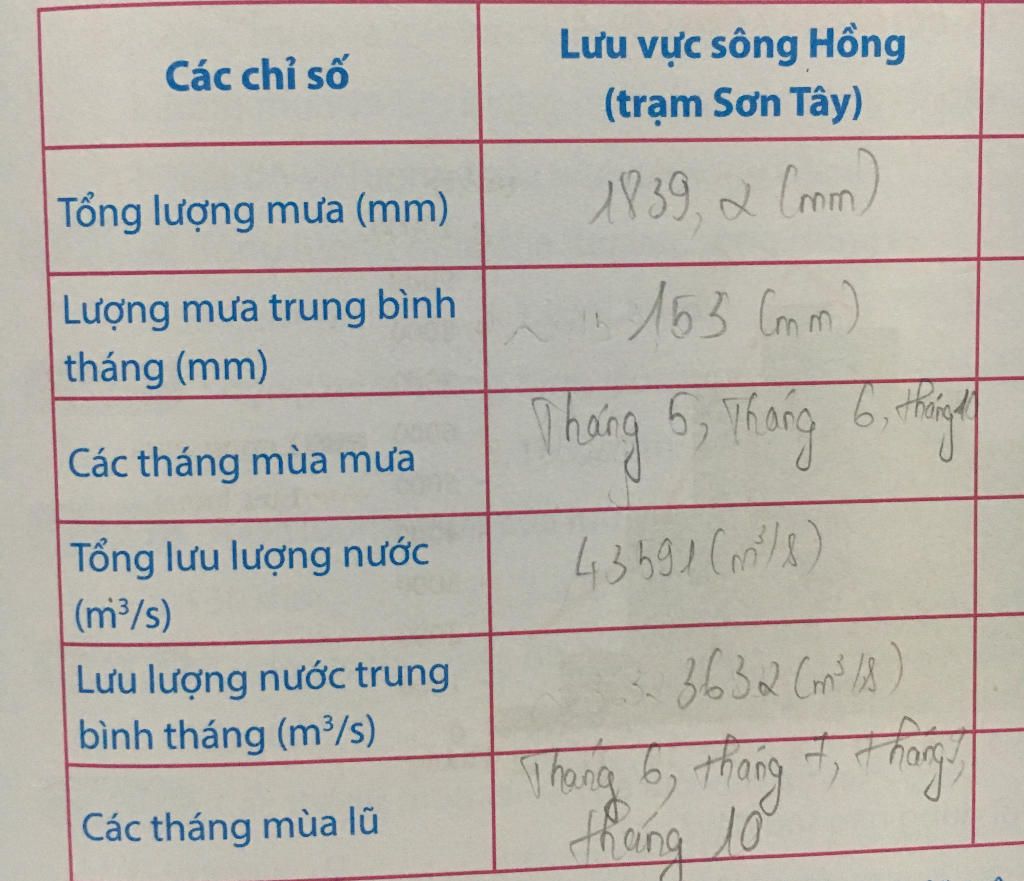 Các chỉ số
Lưu vực sông Hồng
(trạm Sơn Tây)
Tổng lượng mưa (mm)
1839,2 (mm)
Lượng mưa trung bình
tháng (mm)
153 (mm)
Các tháng mùa mưa
Tháng 5, Tháng 6, tháng 10
Tổng lưu lượng nước
(m³/s)
43591 (m³/s)
Lưu lượng nước trung
bình tháng (m³/s)
3632 (m³/s)
Các tháng mùa lũ
Tháng 6, tháng 7, tháng
tháng 10